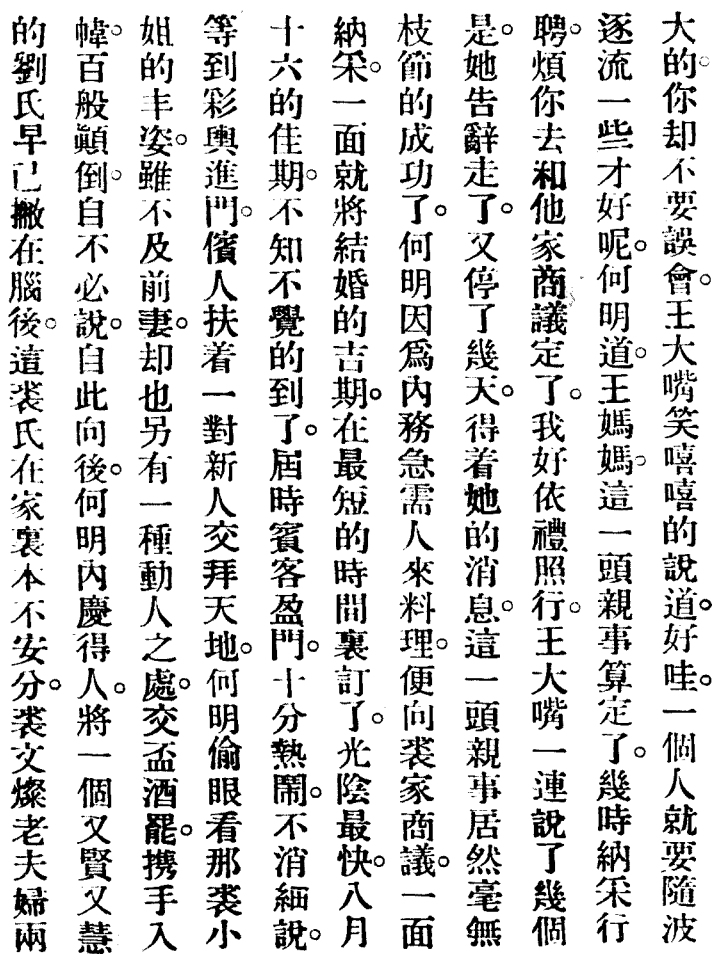 大的。你却不要誤會。王大嘴笑嘻嘻的說道。好哇。一個人就要隨波
逐流一些才好呢。何明道。王媽媽。這一頭親事算定了。幾時納采行
聘。煩你去和他家商議定了。我好依禮照行。王大嘴一連說了幾個
是。她告辭走了。又停了幾天。得着她的消息。這一頭親事居然毫無
枝節的成功了。何明因爲內務急需人來料理。便向裘家商議。一面
納采。一面就將結婚的吉期。在最短的時間裏訂了。光陰最快。八月
十六的佳期。不知不覺的到了。屆時賓客盈門。十分熱鬧。不消細說。
等到彩輿進門。儐人扶着一對新人交拜天地。何明偷眼看那裘小
姐的丰姿。雖不及前妻。却也另有一種動人之處。交盃酒罷。携手入
幃。百般顚倒。自不必說。自此向後。何明內慶得人。將一個又賢又慧
的劉氏早已撇在腦後。這裘氏在家裏本不安分。裘文燦老夫婦兩